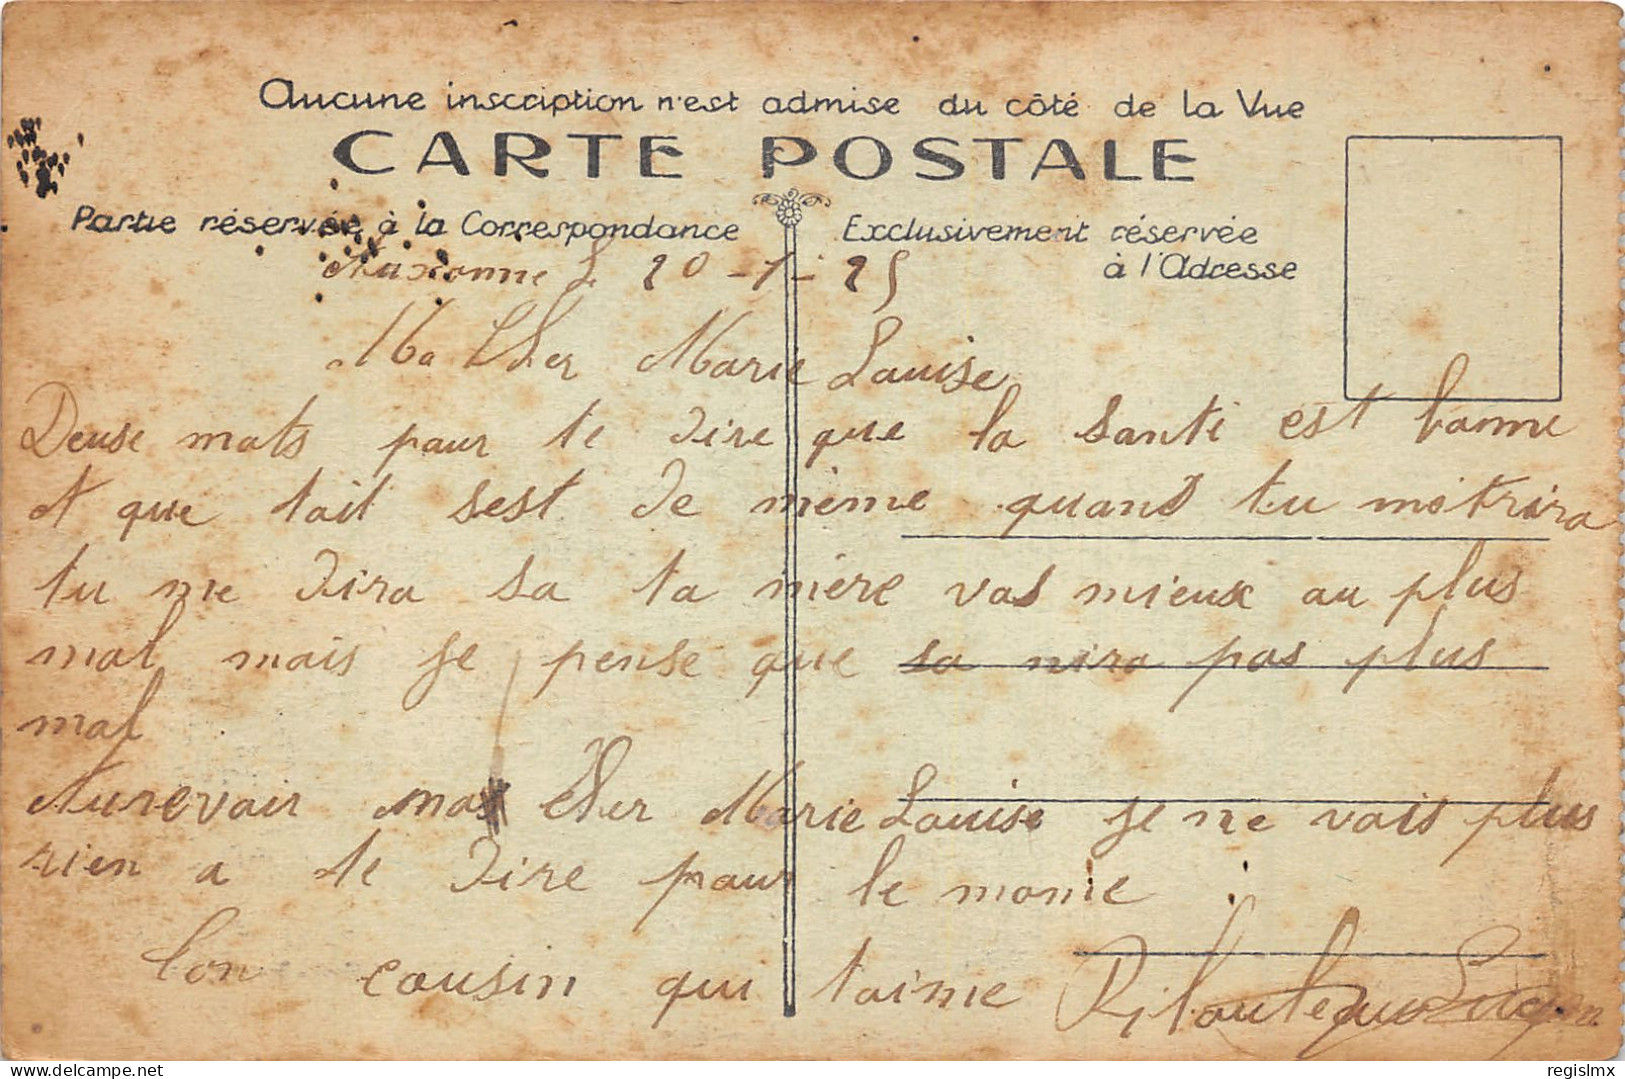 Aucune inscription n'est admise du côté de la Vue
CARTE POSTALE
Partie réservée à la Correspondance
Exclusivement réservée
à l'Adresse
Auxonne
Ma Cher Marie Louise
Deuse mots pour te dire que la Santé est bonne
et que tait sest de même quand tu métrira
tu me dira sa ta mère vas mieux au plus
mal mais je pense que sa nira pas plus
mal
Aurevoir ma Cher Marie Louise je ne vois plus
rien a te dire pour le mome
ton cousin qui taime
delcampe.net
regislmx